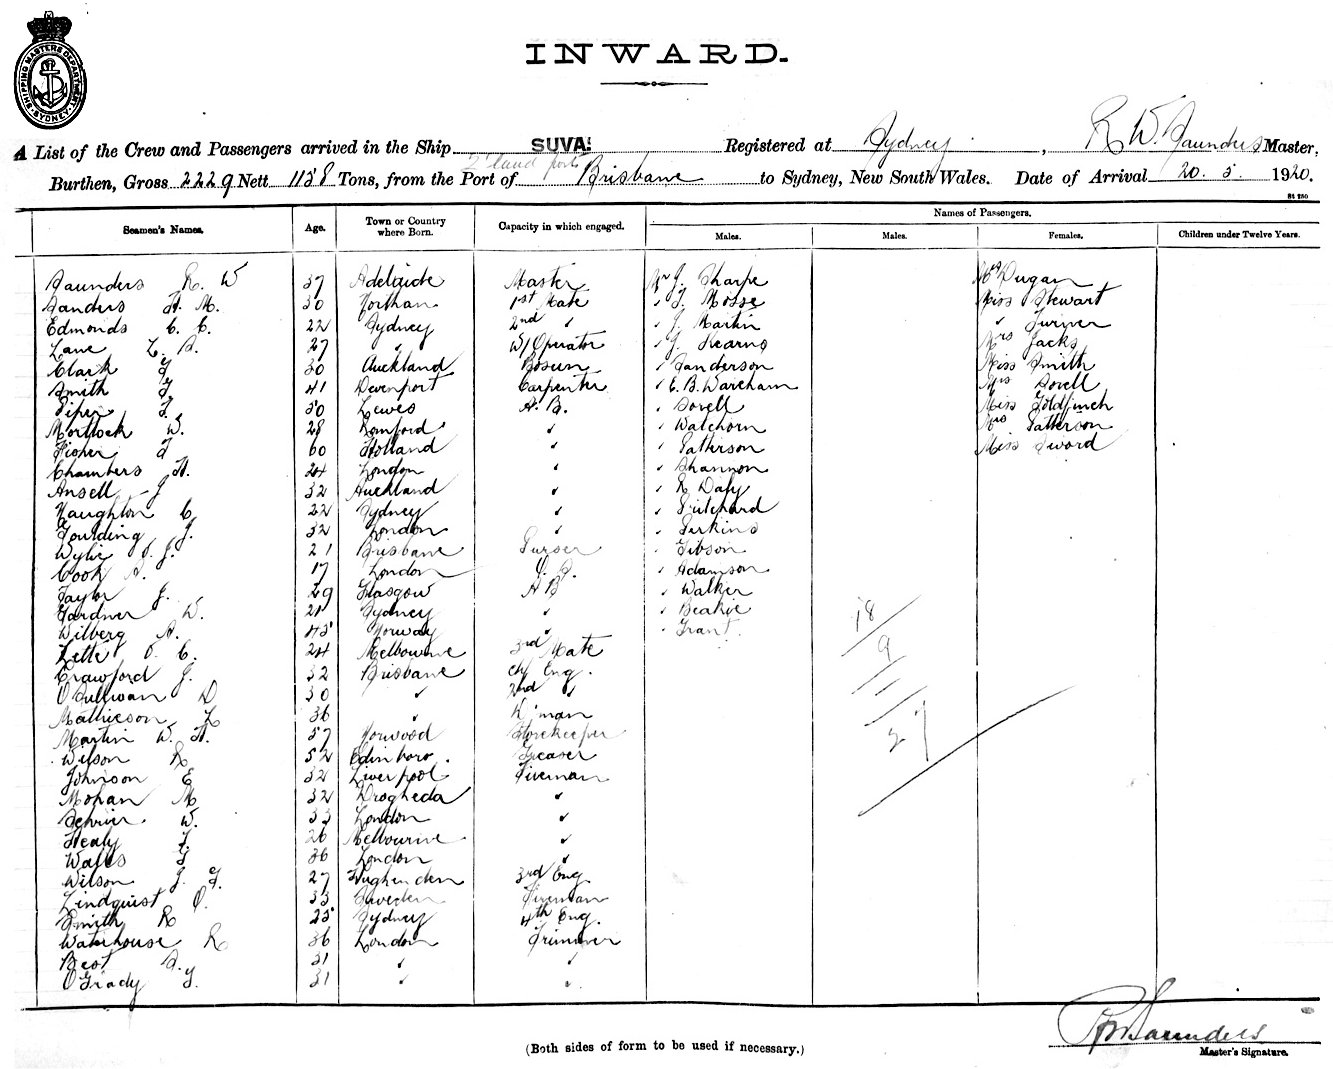 SHIPPING MASTERS DEPARTMENT SYDNEY
INWARD.
A List of the Crew and Passengers arrived in the Ship SUVA. Registered at Sydney, R W. Saunders Master,
Burthen, Gross 2229 Nett 1138 Tons, from the Port of Brisbane to Sydney, New South Wales. Date of Arrival 20. 5. 1920.
Seamen's Names. Age. Town or Country where Born. Capacity in which engaged. Names of Passengers.
Males. Males. Females. Children under Twelve Years.
Saunders R. W 37 Adelaide Master Mr J. Sharpe Mrs Dugan
Sanders H. M. 30 1st Mate " T. Mosse Miss Stewart
Edmonds C. C. 22 Sydney 2nd " " J. Martin " Turner
Lane L. S. 27 " W/Operator " J. Kearns Mrs Jacks
Clark 30 Auckland Bosun " Sanderson Miss Smith
Smith 41 Devonport Carpenter " E. B. Wareham Mrs Sorell
Piper 50 Lewes A. B. " Sorell Miss Goldfinch
Mortlock W. 28 Romford " " Watchorn Mrs Patterson
Fisher 60 Holland " " Patterson Miss Sword
Chambers H. 24 London " " Shannon
Ansell J 32 Auckland " " R Daly
Naughton C 22 Sydney " " Pritchard
Goulding J. 32 London " " Perkins
Wylie J. 21 Brisbane Purser " Gibson
Cook A. 17 London " Adamson
Taylor J. 29 Glasgow A B " Walker
Gardner W. 21 Sydney " " Beakie
Wilberg A. 45 Norway " " Grant.
Melbourne 3rd Mate
Crawford J. 32 Brisbane Chf Eng.
O'Sullivan D 30 " 2nd "
Mathieson L 36 " D'man
Martin W. H. 57 Norwood Storekeeper
Wilson R 52 Edinboro. Greaser
Johnson E 32 Liverpool Fireman
Mohan M 32 Drogheda "
W. 33 London "
Healy T. 26 Melbourne "
Wales 36 London "
Wilson J. F. 27 Hughenden 3rd Eng
Lindquist O. 33 Sweden Fireman
Smith R 25 Sydney 4th Eng.
Waterhouse R 36 London Trimmer
Best 31 " "
O'Grady 31 " "
18
9
27
R W Saunders
Master's Signature.
(Both sides of form to be used if necessary.)